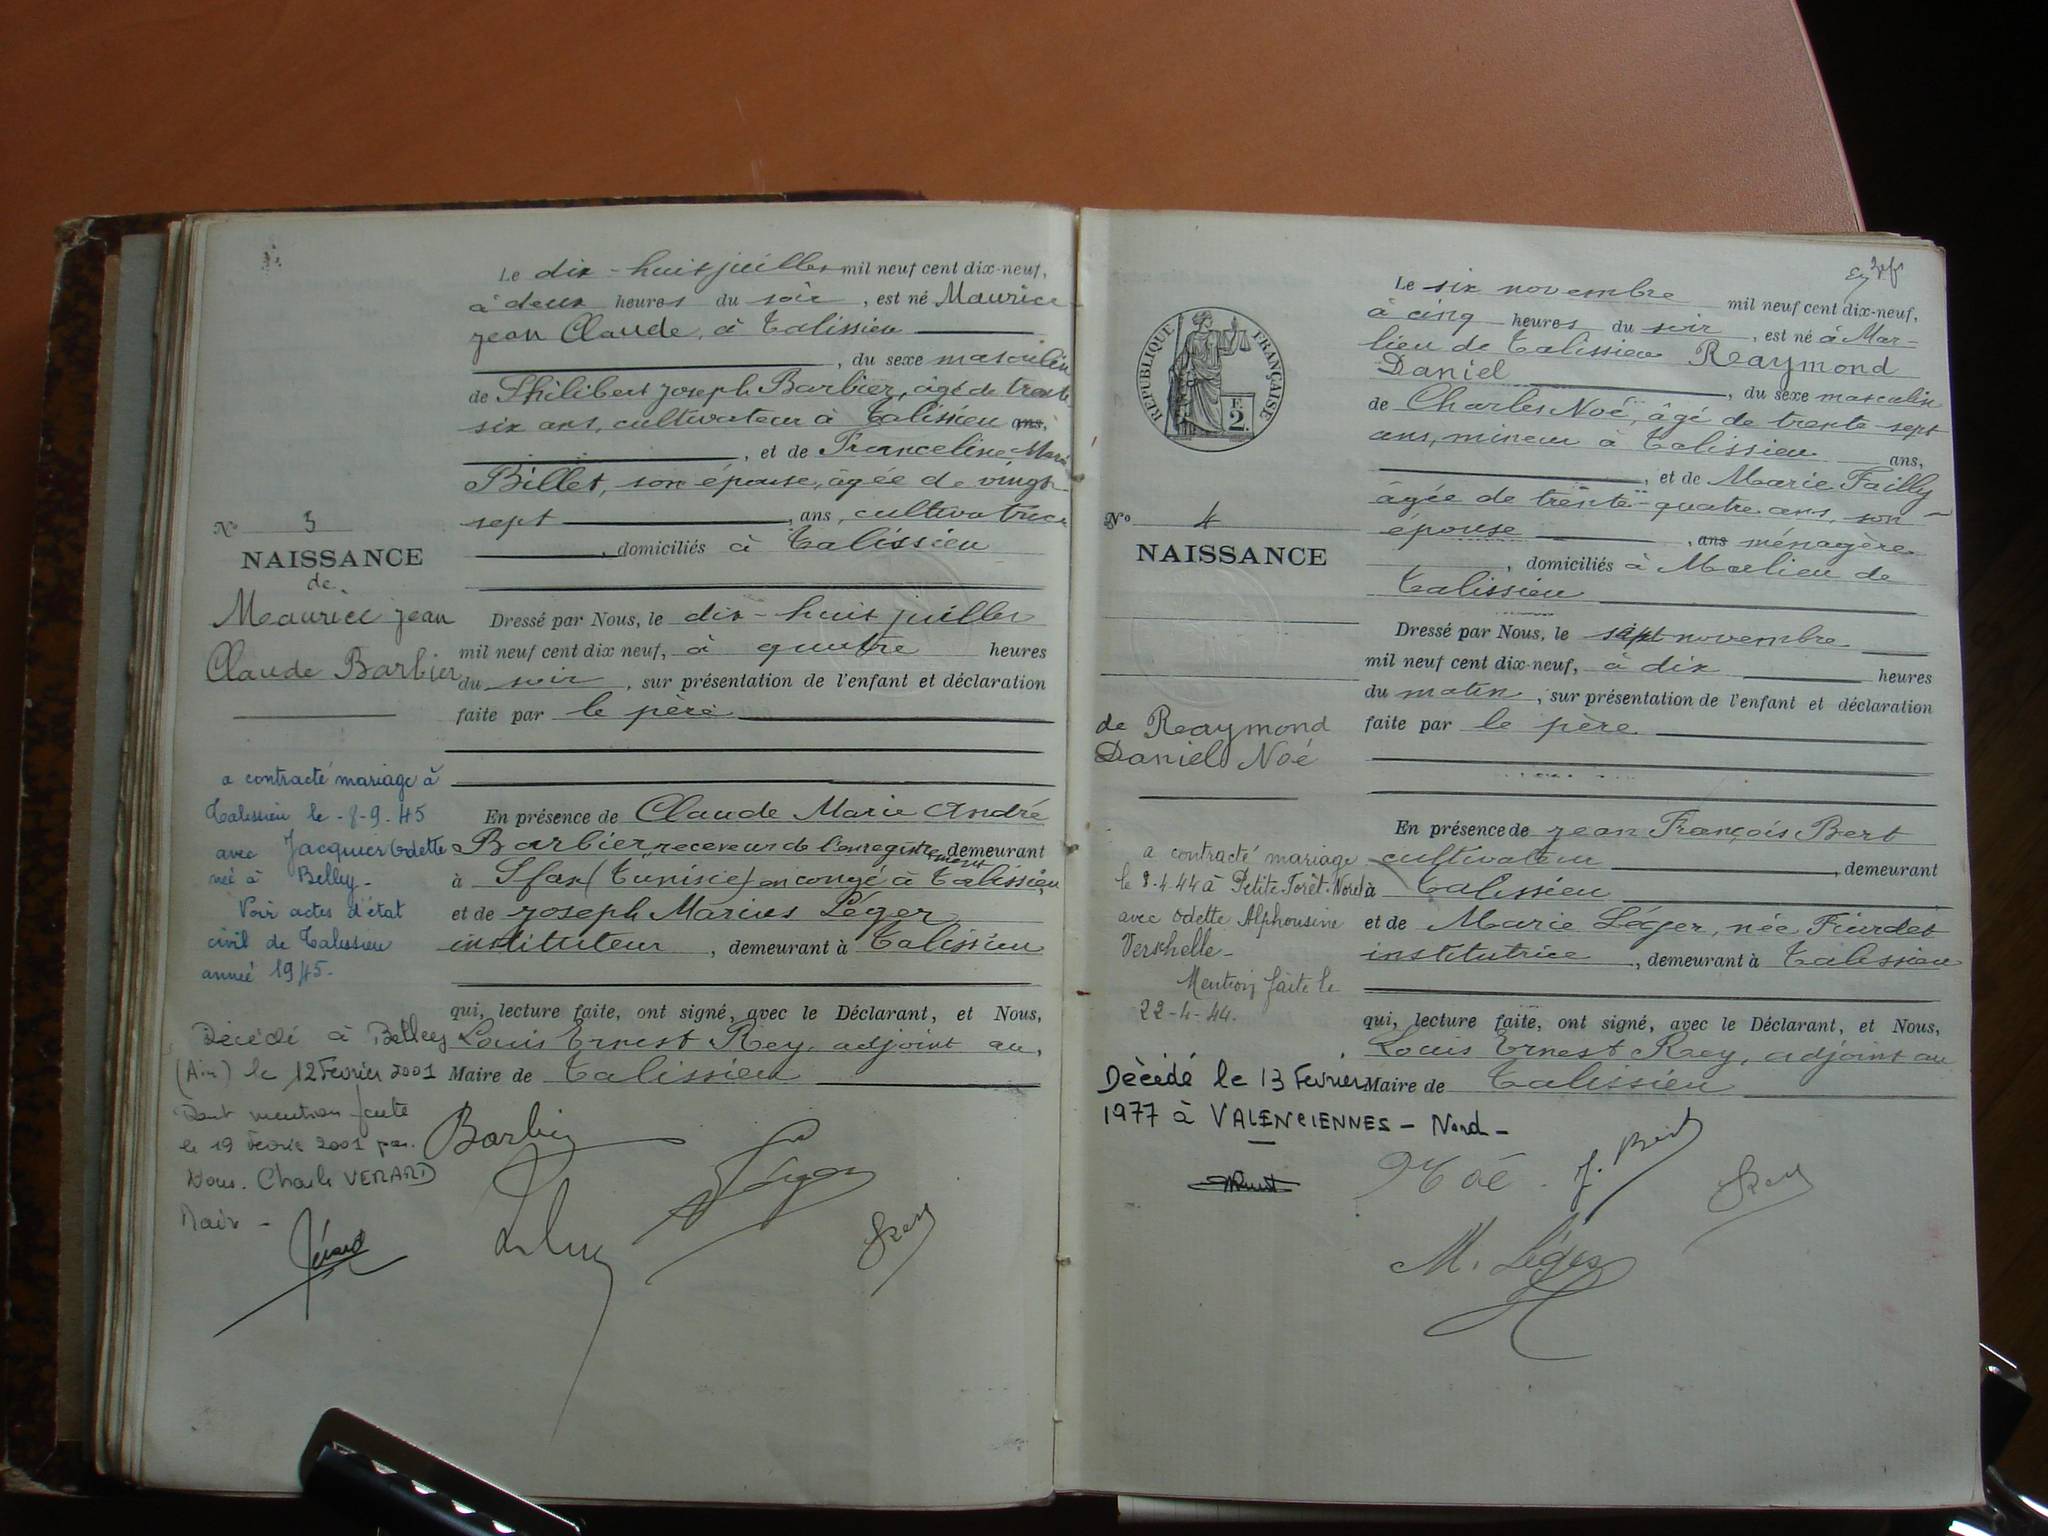 Le dix-huit juillet mil neuf cent dix-neuf,
à deux heures du soir, est né Maurice
jean Claude, à Talissieu
, du sexe masculin
de Philibert joseph Barbier, âgé de trente
six ans, cultivateur à Talissieu ans,
, et de Franceline Marie
Billet, son épouse, âgée de vingt-
sept, ans, cultivatrice
, domiciliés à Talissieu
Nº 3
NAISSANCE
de
Maurice jean
Claude Barbier
Dressé par Nous, le dix-huit juillet
mil neuf cent dix neuf, à quatre heures
du soir, sur présentation de l'enfant et déclaration
faite par le père
a contracté mariage à
Talissieu le -8-9-45
avec Jacquier Odette
née à Belley-
Voir actes d'état
civil de Talissieu
année 1945-
En présence de Claude Marie André
Barbier receveur de l'enregistrement demeurant
à Sfax (Tunisie) en congé à Talissieu
et de joseph Marius Léger
instituteur, demeurant à Talissieu
qui, lecture faite, ont signé, avec le Déclarant, et Nous,
Louis Ernest Rey, adjoint au,
Maire de Talissieu
Décédé à Belley
(Ain) le 12 Février 2001
Dont mention faite
le 19 Février 2001 par
Nous. Charle VERARD
Maire -
Barbier
Léger
Rey
Vérard
REPUBLIQUE FRANÇAISE
F.
2.
Le six novembre mil neuf cent dix-neuf,
à cinq heures du soir, est né à Mar-
lieu de Talissieu Raymond
Daniel, du sexe masculin
de Charles Noé, âgé de trente-sept
ans, mineur à Talissieu ans,
, et de Marie Failly
âgée de trente-quatre ans, son
épouse, ans ménagère
, domiciliés à Marlieu de
Talissieu
Nº 4
NAISSANCE
de Raymond
Daniel Noé
Dressé par Nous, le sept novembre
mil neuf cent dix-neuf, à dix heures
du matin, sur présentation de l'enfant et déclaration
faite par le père
En présence de jean François Bert
cultivateur, demeurant
à Talissieu
et de Marie Léger, née
institutrice, demeurant à Talissieu
qui, lecture faite, ont signé, avec le Déclarant, et Nous,
Louis Ernest Rey, adjoint au
Maire de Talissieu
a contracté mariage
le 8.4.44 à Petite-Forêt-Nord
avec Odette Alphonsine
Mention faite le
22-4-44.
Décédé le 13 Février
1977 à VALENCIENNES - Nord -
Noé
J. Bert
Rey
M. Léger